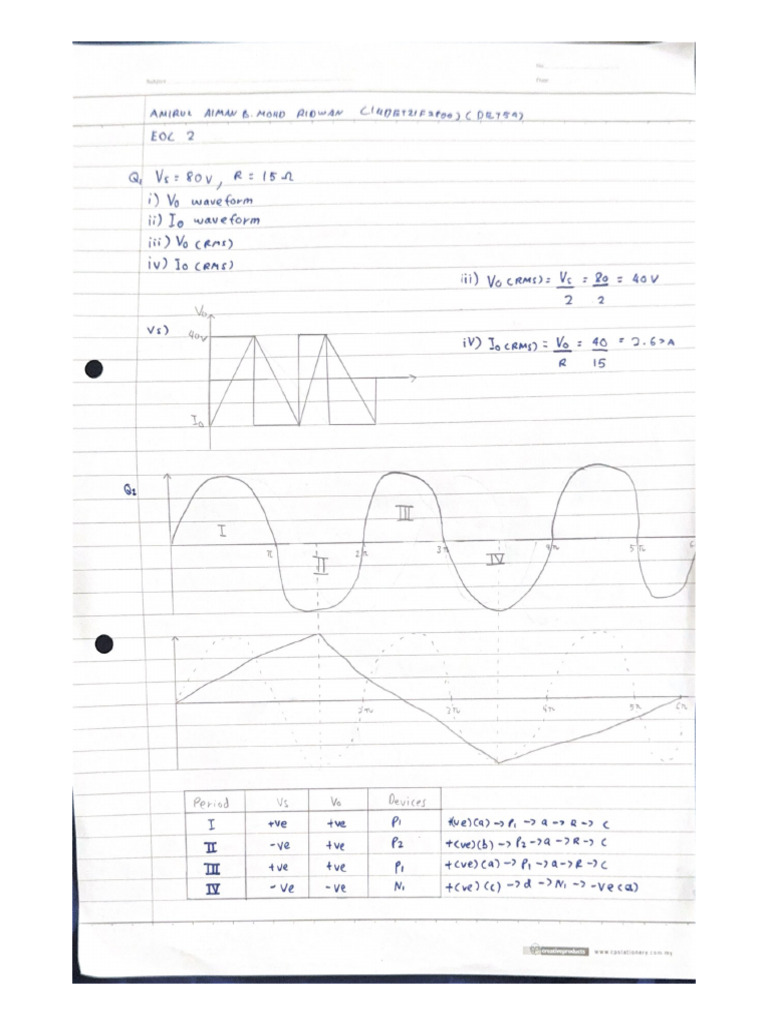 No.
Subject
Date
AMIRUL AIMAN B. MOHD RIDWAN
EOC 2
Q1 Vs = 80V, R = 15Ω
i) Vo waveform
ii) Io waveform
iii) Vo (RMS)
iv) Io (RMS)
iii) Vo (RMS) = Vs/2 = 80/2 = 40V
iv) Io (RMS) = Vo/R = 40/15 = 2.67A
Vs)
Vo
40V
Io
Q2
I
II
III
IV
π 2π 3π 4π 5π 6
2π 4π 5π 6π
Period Vs Vo Devices
I +ve +ve P1 +(ve)(a) -> P1 -> a -> R -> c
II -ve +ve P2 +(ve)(b) -> P2 -> a -> R -> c
III +ve +ve P1 +(ve)(a) -> P1 -> a -> R -> c
IV -ve -ve N1 +(ve)(c) -> d -> N1 -> -ve(a)
www.cpstationery.com.my